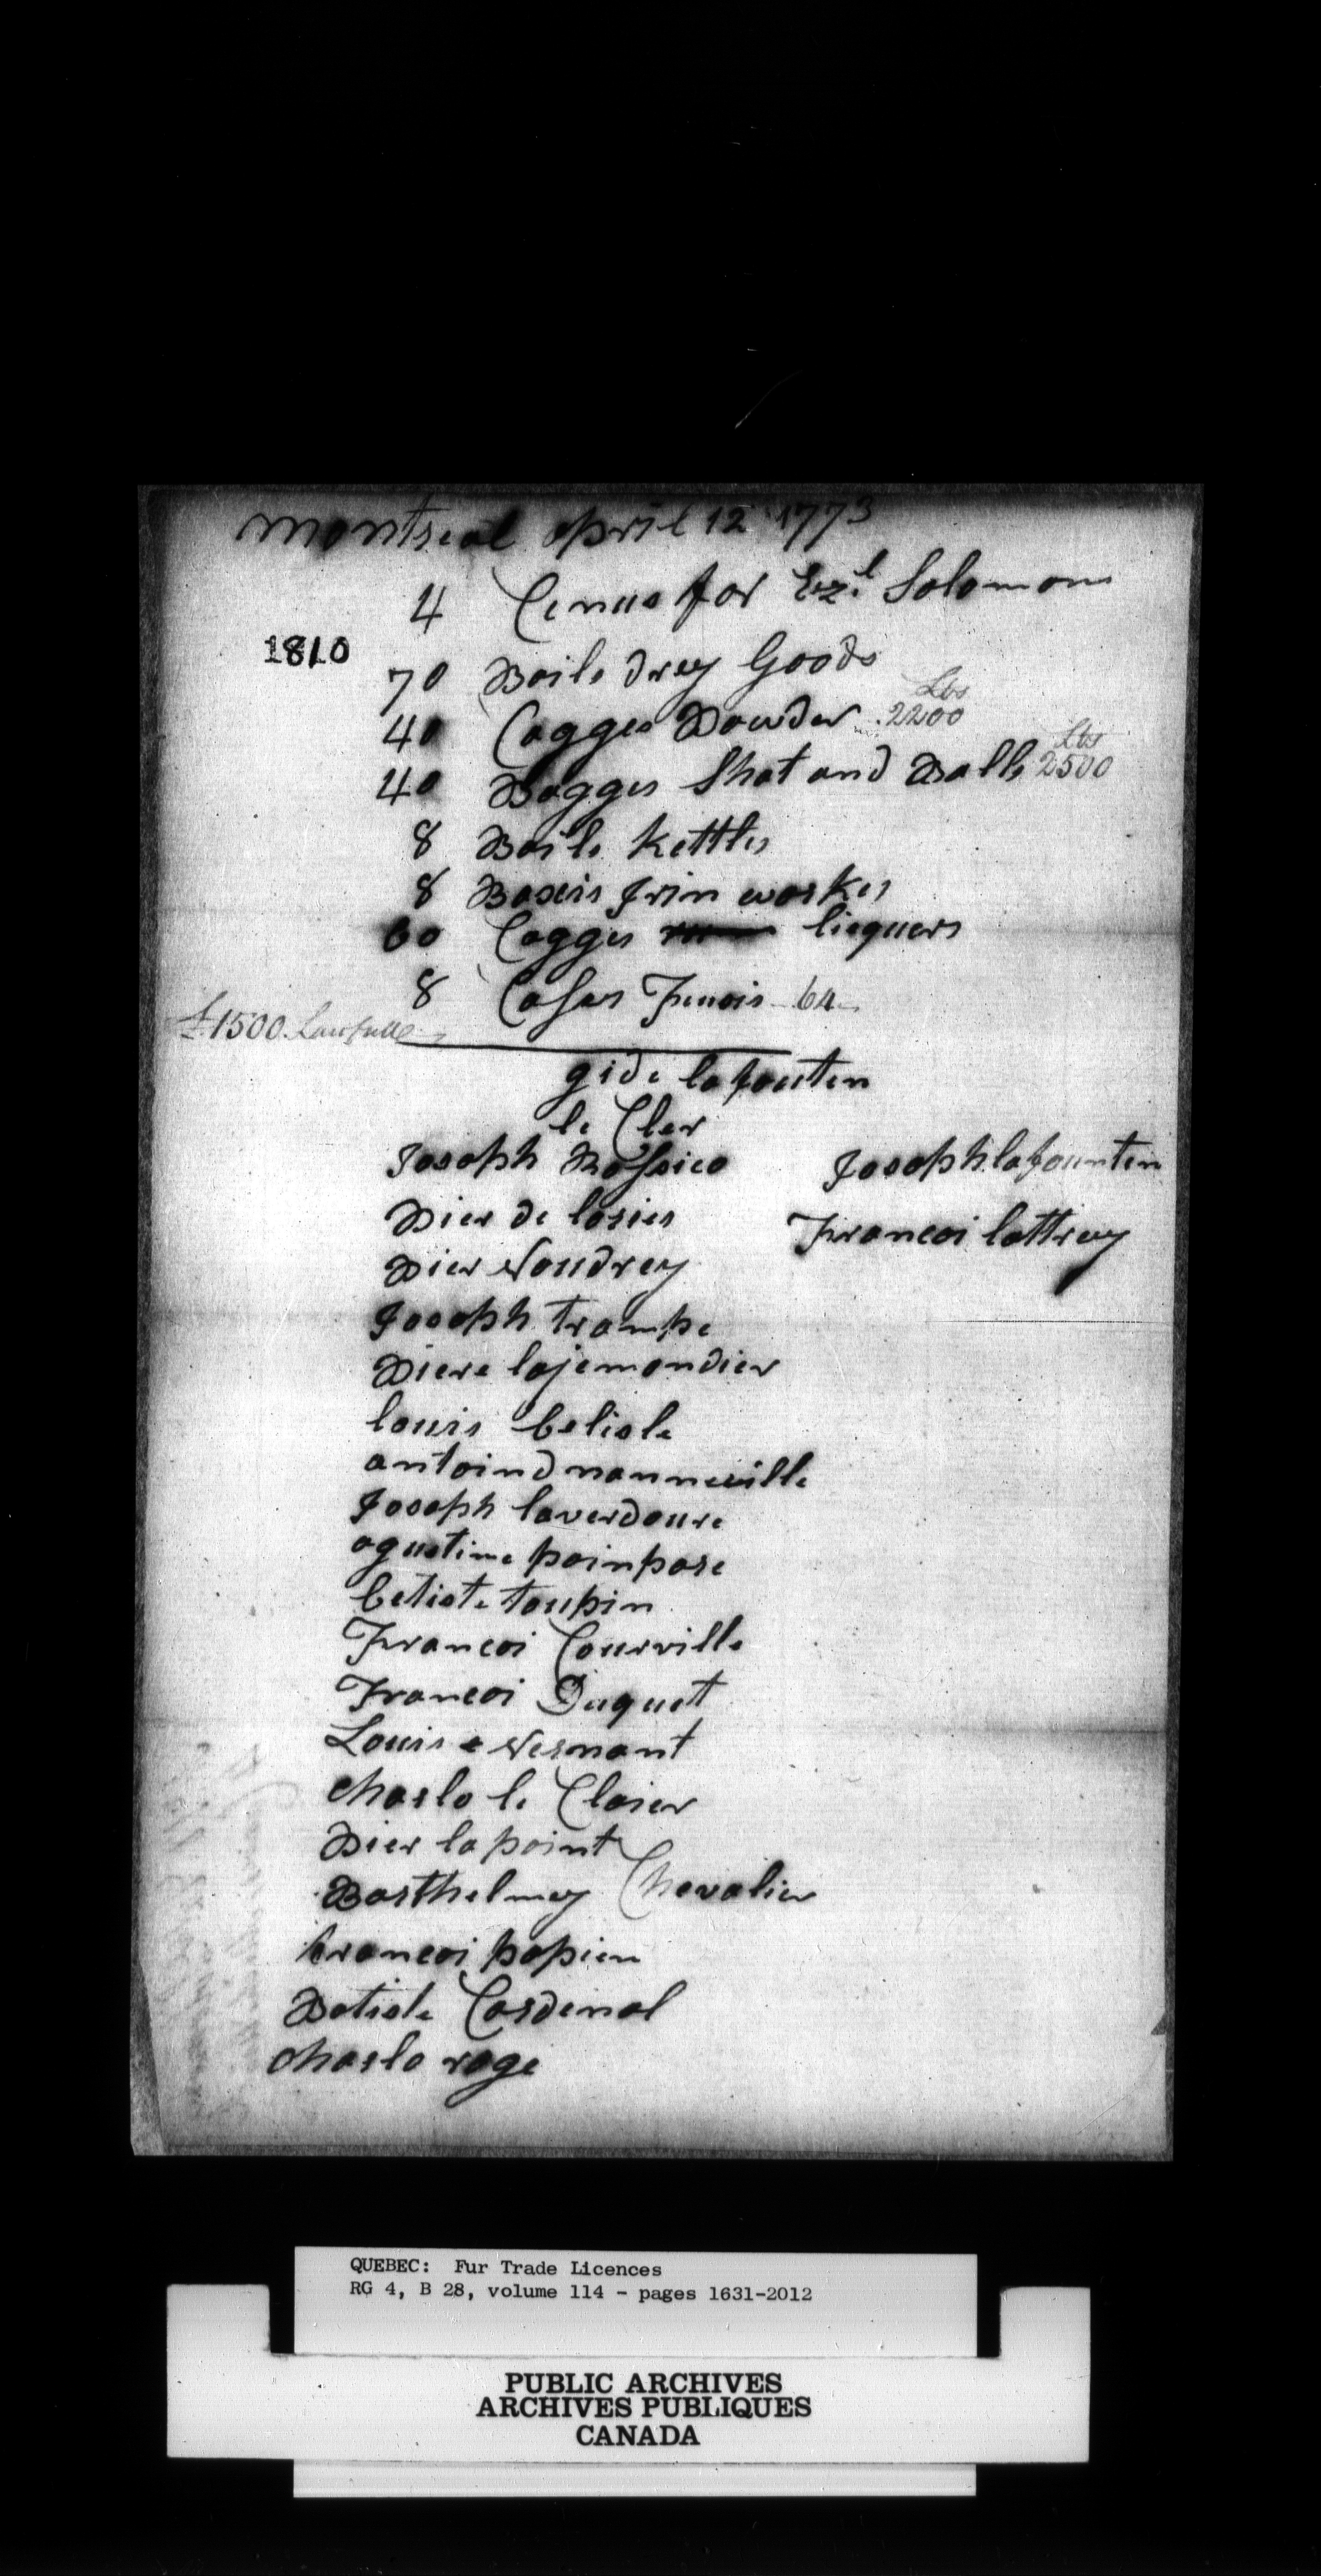 Montreal april 12 1773
4 Cenus for Ezl. Solomons
1810
70 Bails drey Goods
40 Cagges Powder 2200 Lbs
40 Bagges Shot and Balls 2500 Lbs
8 Bails Kettles
8 Boxeis Irin workes
60 Cagges liequers
8 Cases Fusois 64
£1500 Lawfull
gide lafouten
le Cler
Joseph Rossico
Josoph lafounten
Pier de losier
Francoi lattrey
Pier Voudrey
Josoph trompe
Piere lajemondier
louis belisle
antoind nanneville
Josoph laverdoure
agustine poinpare
betiste toupin
Francoi Courville
Francoi Duquet
Louis Vernant
charlo le Clairer
Pier lapoint
Barthelmey Chevalier
francoi papien
Batiste Cardenal
charlo roge
QUEBEC: Fur Trade Licences
RG 4, B 28, volume 114 - pages 1631-2012
PUBLIC ARCHIVES
ARCHIVES PUBLIQUES
CANADA